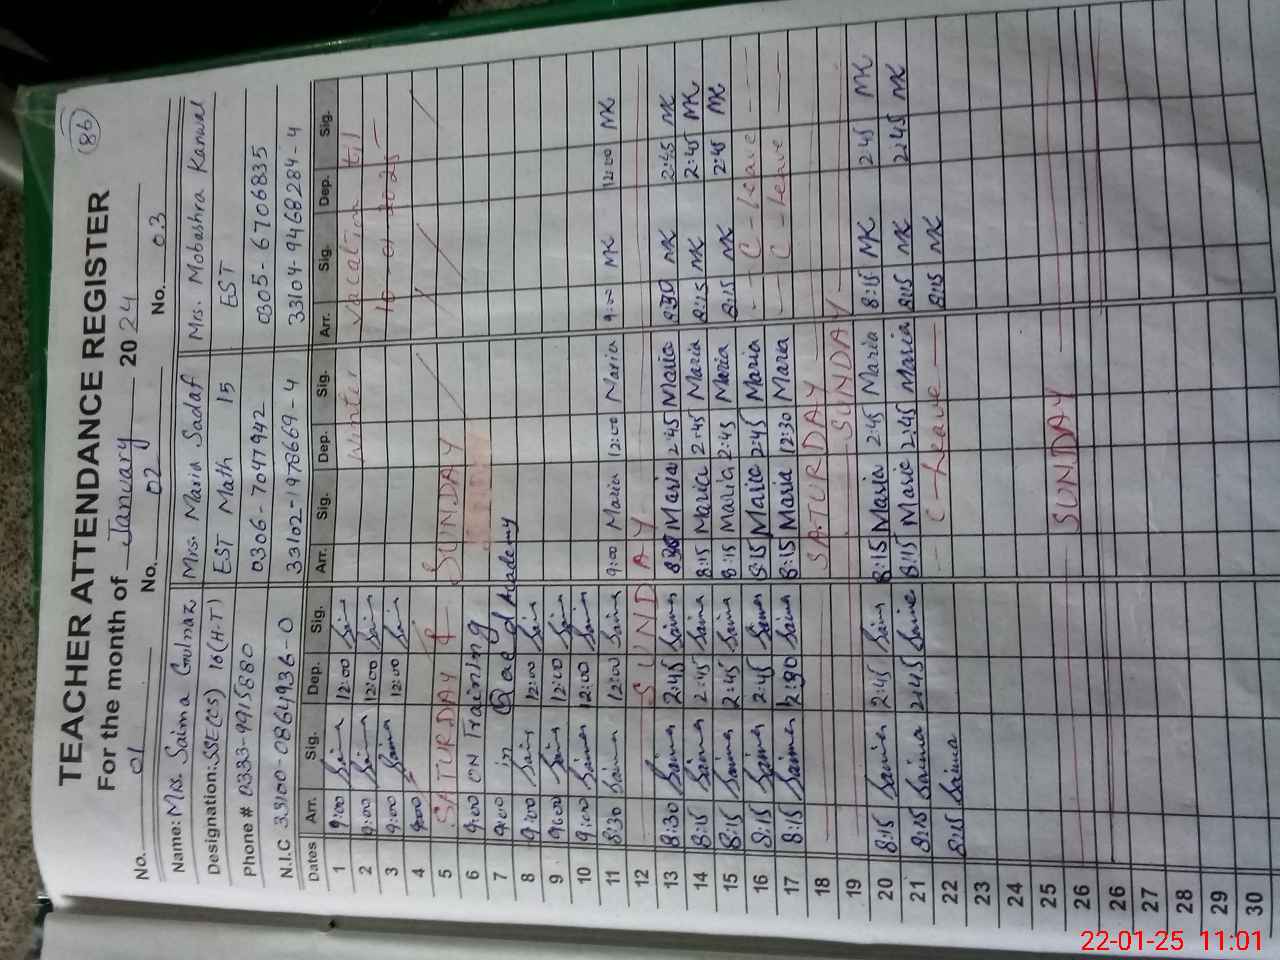 86
TEACHER ATTENDANCE REGISTER
For the month of January 2024
No. 01 No. 02 No. 03
Name: Mrs. Saima Gulnaz Mrs. Maria Sadaf Mrs. Mobashra Kanwal
Designation: SSE(CS) 16 (H.T) EST Math 15 EST
Phone # 0333-9915880 0306-7047942 0305-6706835
N.I.C 33100-0864936-0 33102-1978669-4 33104-9468284-4
Dates Arr. Sig. Dep. Sig. Arr. Sig. Dep. Sig. Arr. Sig. Dep. Sig.
1 9:00 Saima 12:00 Saima Winter vacation til
2 9:00 Saima 12:00 Saima 10-01-2025
3 9:00 Saima 12:00 Saima
4 9:00
5 SATURDAY & SUNDAY
6 9:00 ON Training
7 9:00 in Qaed Academy
8 9:00 Saima 12:00 Saima
9 9:00 Saima 12:00 Saima
10 9:00 Saima 12:00 Saima
11 8:30 Saima 12:00 Saima 9:00 Maria 12:00 Maria 9:00 MK 12:00 MK
12 SUNDAY
13 8:30 Saima 2:45 Saima 8:30 Maria 2:45 Maria 8:30 MK 2:45 MK
14 8:15 Saima 2:45 Saima 8:15 Maria 2:45 Maria 8:15 MK 2:45 MK
15 8:15 Saima 2:45 Saima 8:15 Maria 2:45 Maria 8:15 MK 2:45 MK
16 8:15 Saima 2:45 Saima 8:15 Maria 2:45 Maria C-Leave
17 8:15 Saima 12:30 Saima 8:15 Maria 12:30 Maria C-Leave
18 SATURDAY
19 SUNDAY
20 8:15 Saima 2:45 Saima 8:15 Maria 2:45 Maria 8:15 MK 2:45 MK
21 8:15 Saima 2:45 Saima 8:15 Maria 2:45 Maria 8:15 MK 2:45 MK
22 8:15 Saima C-Leave 8:15 MK
23
24
25
26 SUNDAY
26
27
28
29
30
22-01-25 11:01